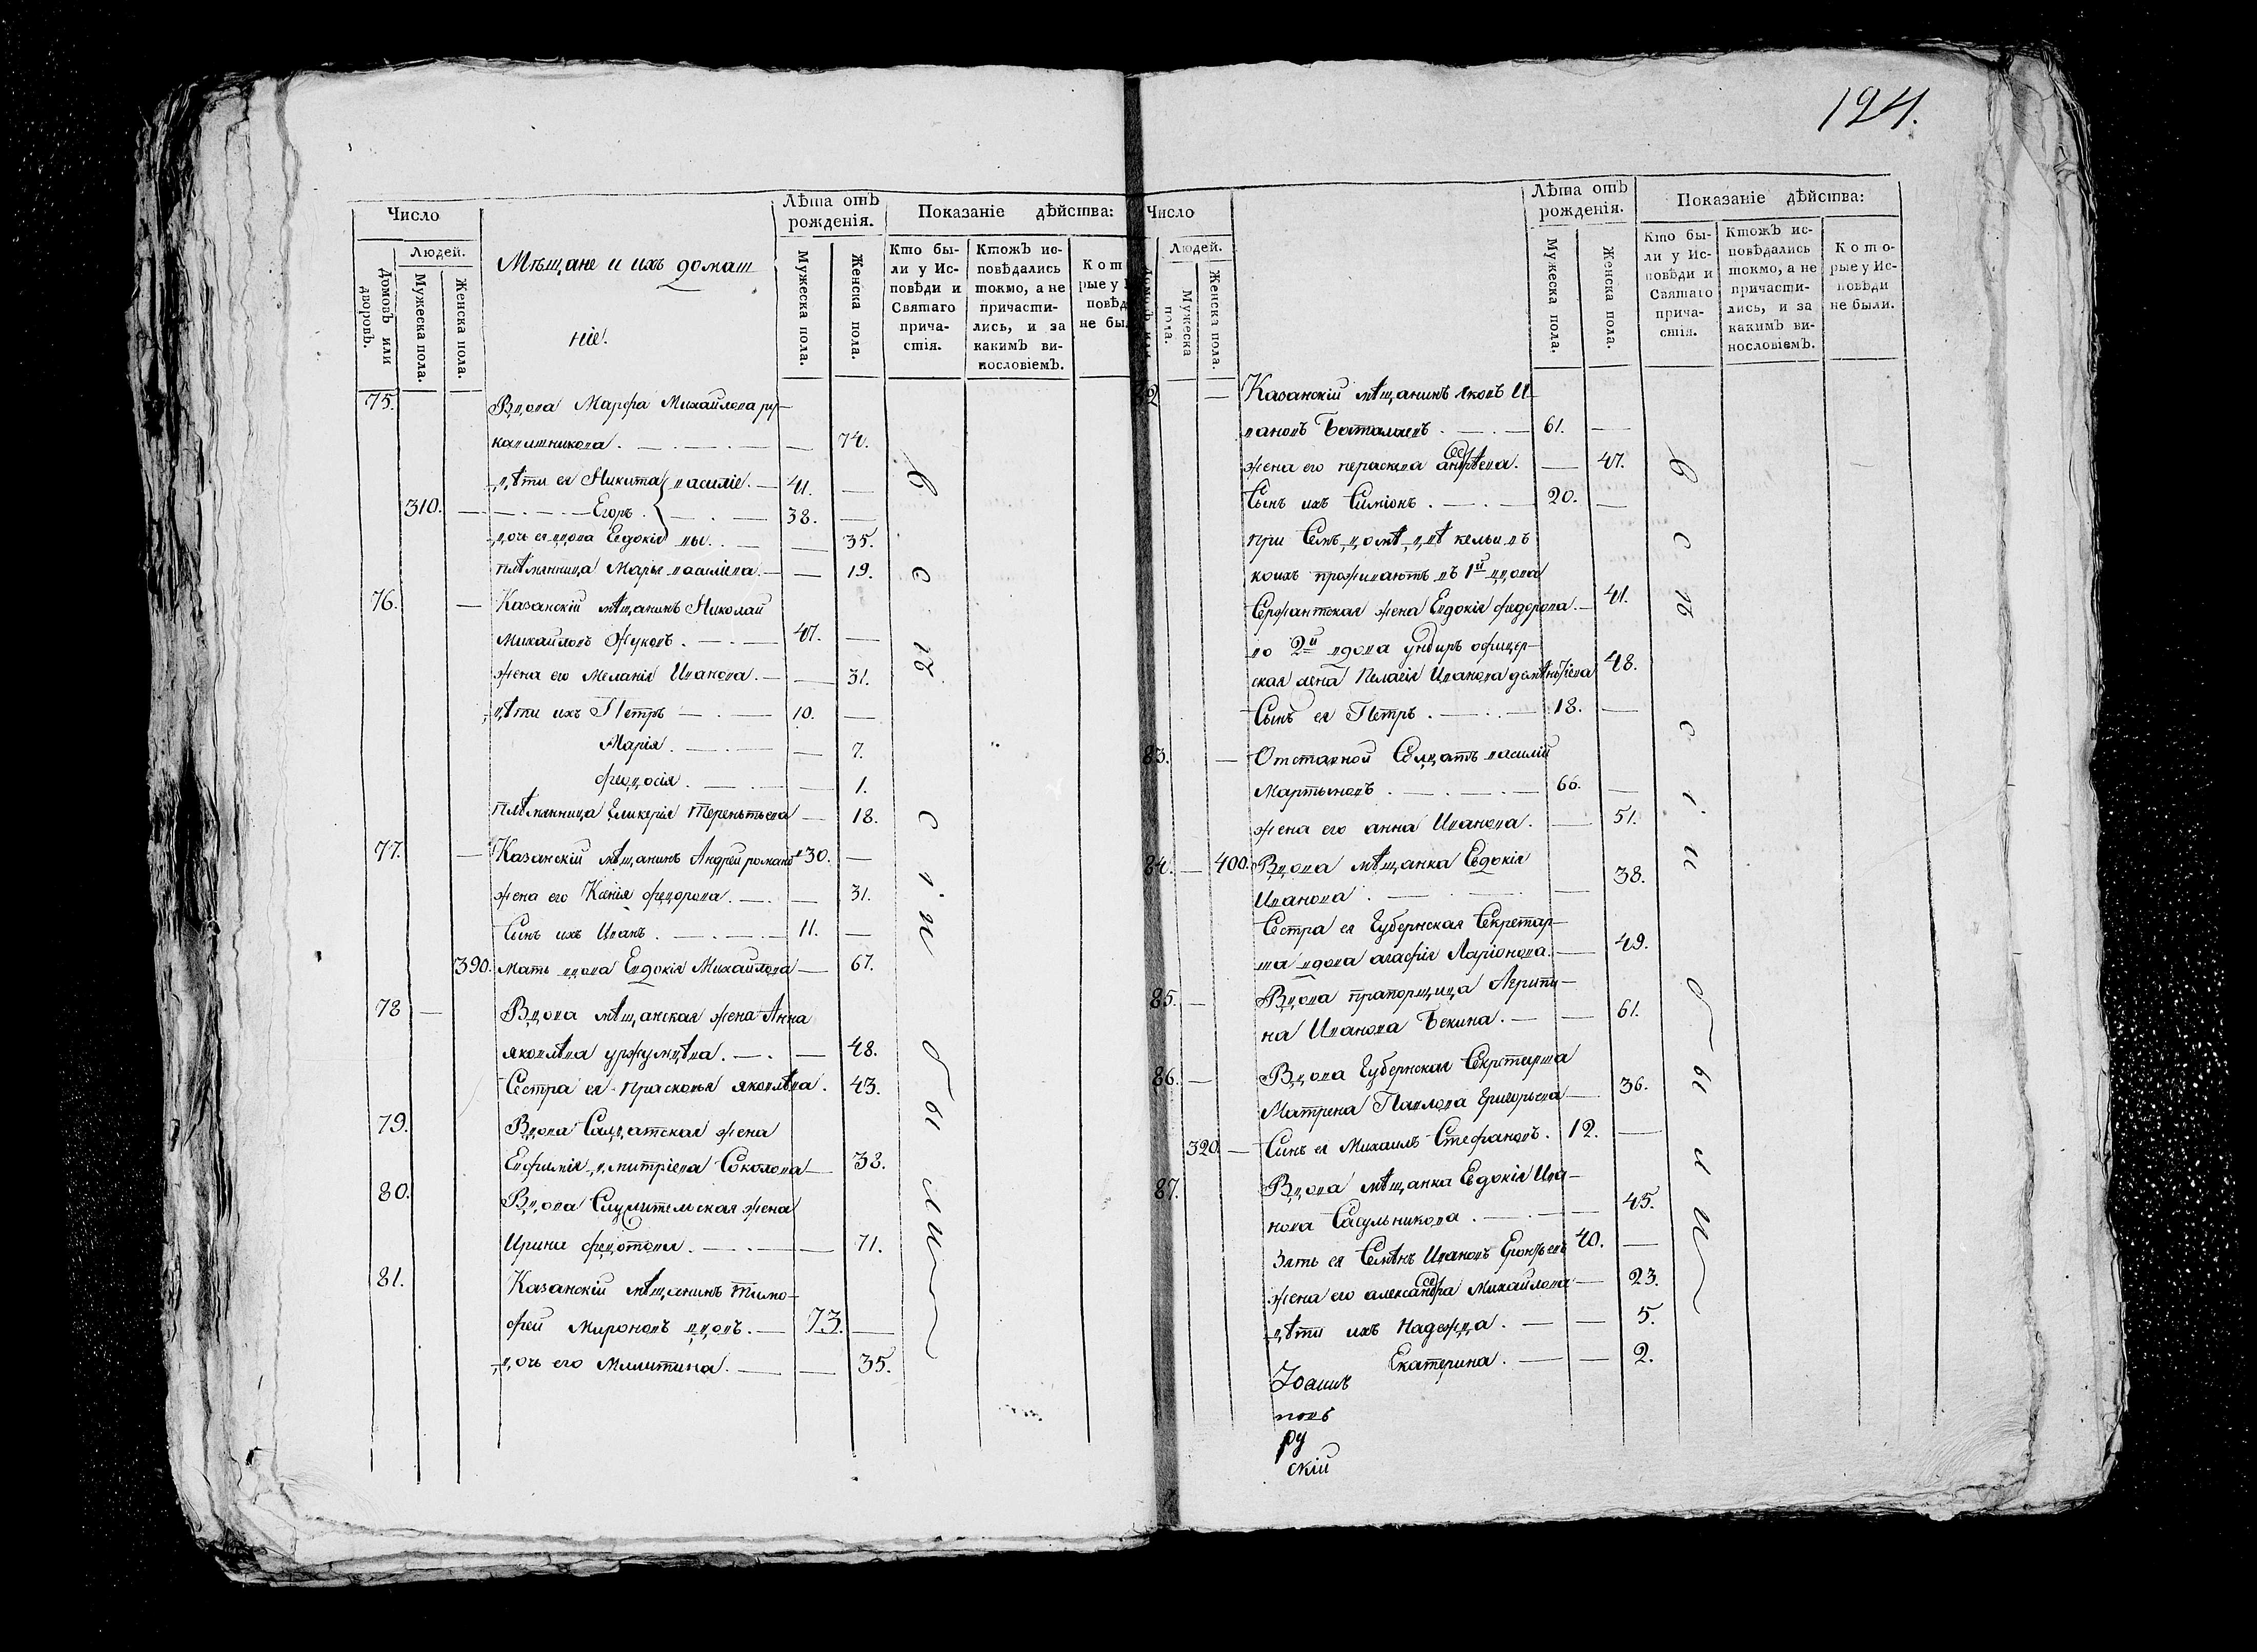 124.
Число
Людей.
Домовъ или дворовъ.
Мужеска пола.
Женска пола.
Мѣщане и ихъ домаш
ніе.
Лѣта отъ рожденія.
Мужеска пола.
Женска пола.
Показаніе дѣйства:
Кто были у Исповѣди и Святаго причастія.
Ктожъ исповѣдались токмо, а не причастились, и за какимъ винословіемъ.
Кот
рые у
повѣд
не бы
75. Вдова Марфа Михайлова ру-
кавишникова. 74.
дѣти ея Никита василіе. 41.
310. Егоръ. 38.
дочь ея вдова Евдокія 35.
племянница Марья василіева. 19.
76. Казанскій мѣщанинъ Николай
Михайловъ Жуковъ. 47.
жена его Меланія Иванова. 31.
дѣти ихъ Петръ 10.
Марія. 7.
феодосія. 1.
племянница Гликерія Терентьева 18.
77. Казанскій мѣщанинъ Андрей романовъ 30.
жена его Ксенія федорова. 31.
Сынъ ихъ Иванъ. 11.
390. мать вдова Евдокія Михайлова 67.
78 Вдова мѣщанская жена Анна
яковлева уржумцева. 48.
Сестра ея Прасковья яковлева. 43.
79. Вдова Салдатская жена
Евфимія дмитріева Соколова 38.
80. Вдова Служительская жена
Ирина федотова. 71.
81. Казанскій мѣщанинъ тимо-
фей Мироновъ вдовъ. 73.
дочь его Милитина. 35.
в с ѣ с і и б ы л и
Число
Людей.
Мужеска пола.
Женска пола.
Лѣта отъ рожденія.
Мужеска пола.
Женска пола.
Показаніе дѣйства:
Кто были у Исповѣди и Святаго причастія.
Ктожъ исповѣдались токмо, а не причастились, и за какимъ винословіемъ.
Которые у Исповѣди не были.
82 Казанскій мѣщанинъ яковъ И-
вановъ Баталаевъ. 61.
жена его параскева андреева. 47.
Сынъ ихъ Симіонъ. 20.
при Семъ домѣ двѣ кельи въ
коихъ проживаютъ въ 1й вдова
Сержантская жена Евдокія федорова. 41.
во 2й вдова ундиръ офицер-
ская жена Пелагія Иванова 48.
Сынъ ея Петръ. 18.
83. Отставной Солдатъ василій
Мартыновъ. 66.
жена его анна Иванова. 51.
84. 400. Вдова мѣщанка Евдокія
Иванова. 38.
Сестра ея Губернская Секретар-
ша вдова агафія Ларіонова. 49.
85. Вдова прапорщица Агрипи-
на Иванова Бекина. 61.
86. Вдова Губернская Секретарша
Матрена Павлова Григорьева 36.
320. Сынъ ея Михаилъ Стефановъ. 12.
87. Вдова мѣщанка Евдокія Ива-
нова Сасульникова. 45.
Зять ея Семенъ Ивановъ 40.
жена его александра Михайлова 23.
дѣти ихъ Надежда. 5.
Екатерина. 2.
в с ѣ с і и б ы л и
Іоаннъ
повъ
ру
скій